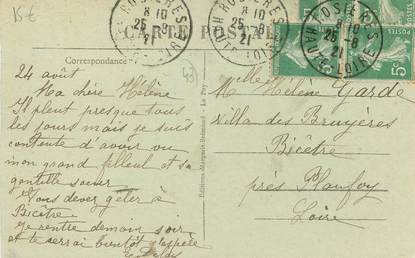 15€
ROSIÈRES
8 10
25-8
21
Hte LOIRE
CARTE POSTALE
Correspondance
43
Éditions Margerit-Brémond - Le Puy
5c
24 août
Ma chère Hélène
Il pleut presque tous
les jours mais je suis
contente d'avoir vu
mon grand filleul et sa
gentille soeur
Vous devez geler à
Bicêtre.
Je rentre demain soir
et te verrai bientôt
Melle Hélène Garde
villa des Bruyères
Bicêtre
près Planfoy
Loire